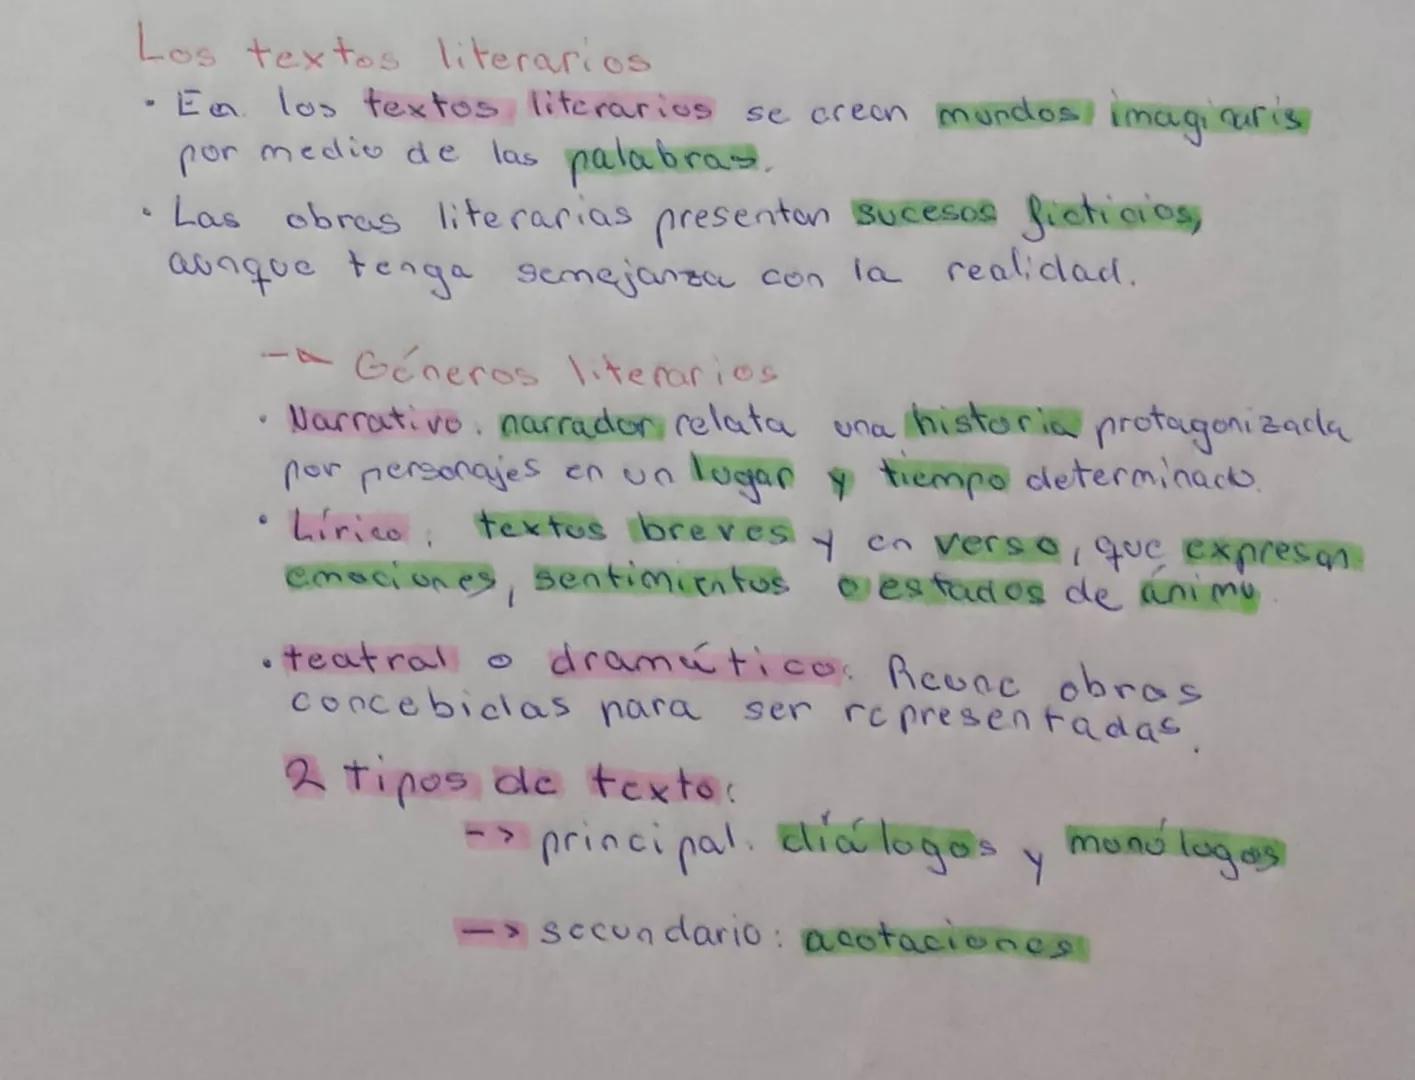 Los textos literarios
• En los textos literarios se crean mundos
por medio de las palabras.
• Las obras literarias presentan sucesos ficticios,
aunque tenga semejanza con la realidad.
→ Géneros literarios
• Narrativo. narrador relata una historia protagonizada
por personajes en un lugar y tiempo determinado.
• Lírico: textos breves y en verso, que expresan
emociones, sentimientos o estados de ánimo.
• teatral o dramático: Reune obras
concebidas para ser representadas.
2 tipos de texto:
-> principal. diálogos y monólogos
-> secundario: acotaciones